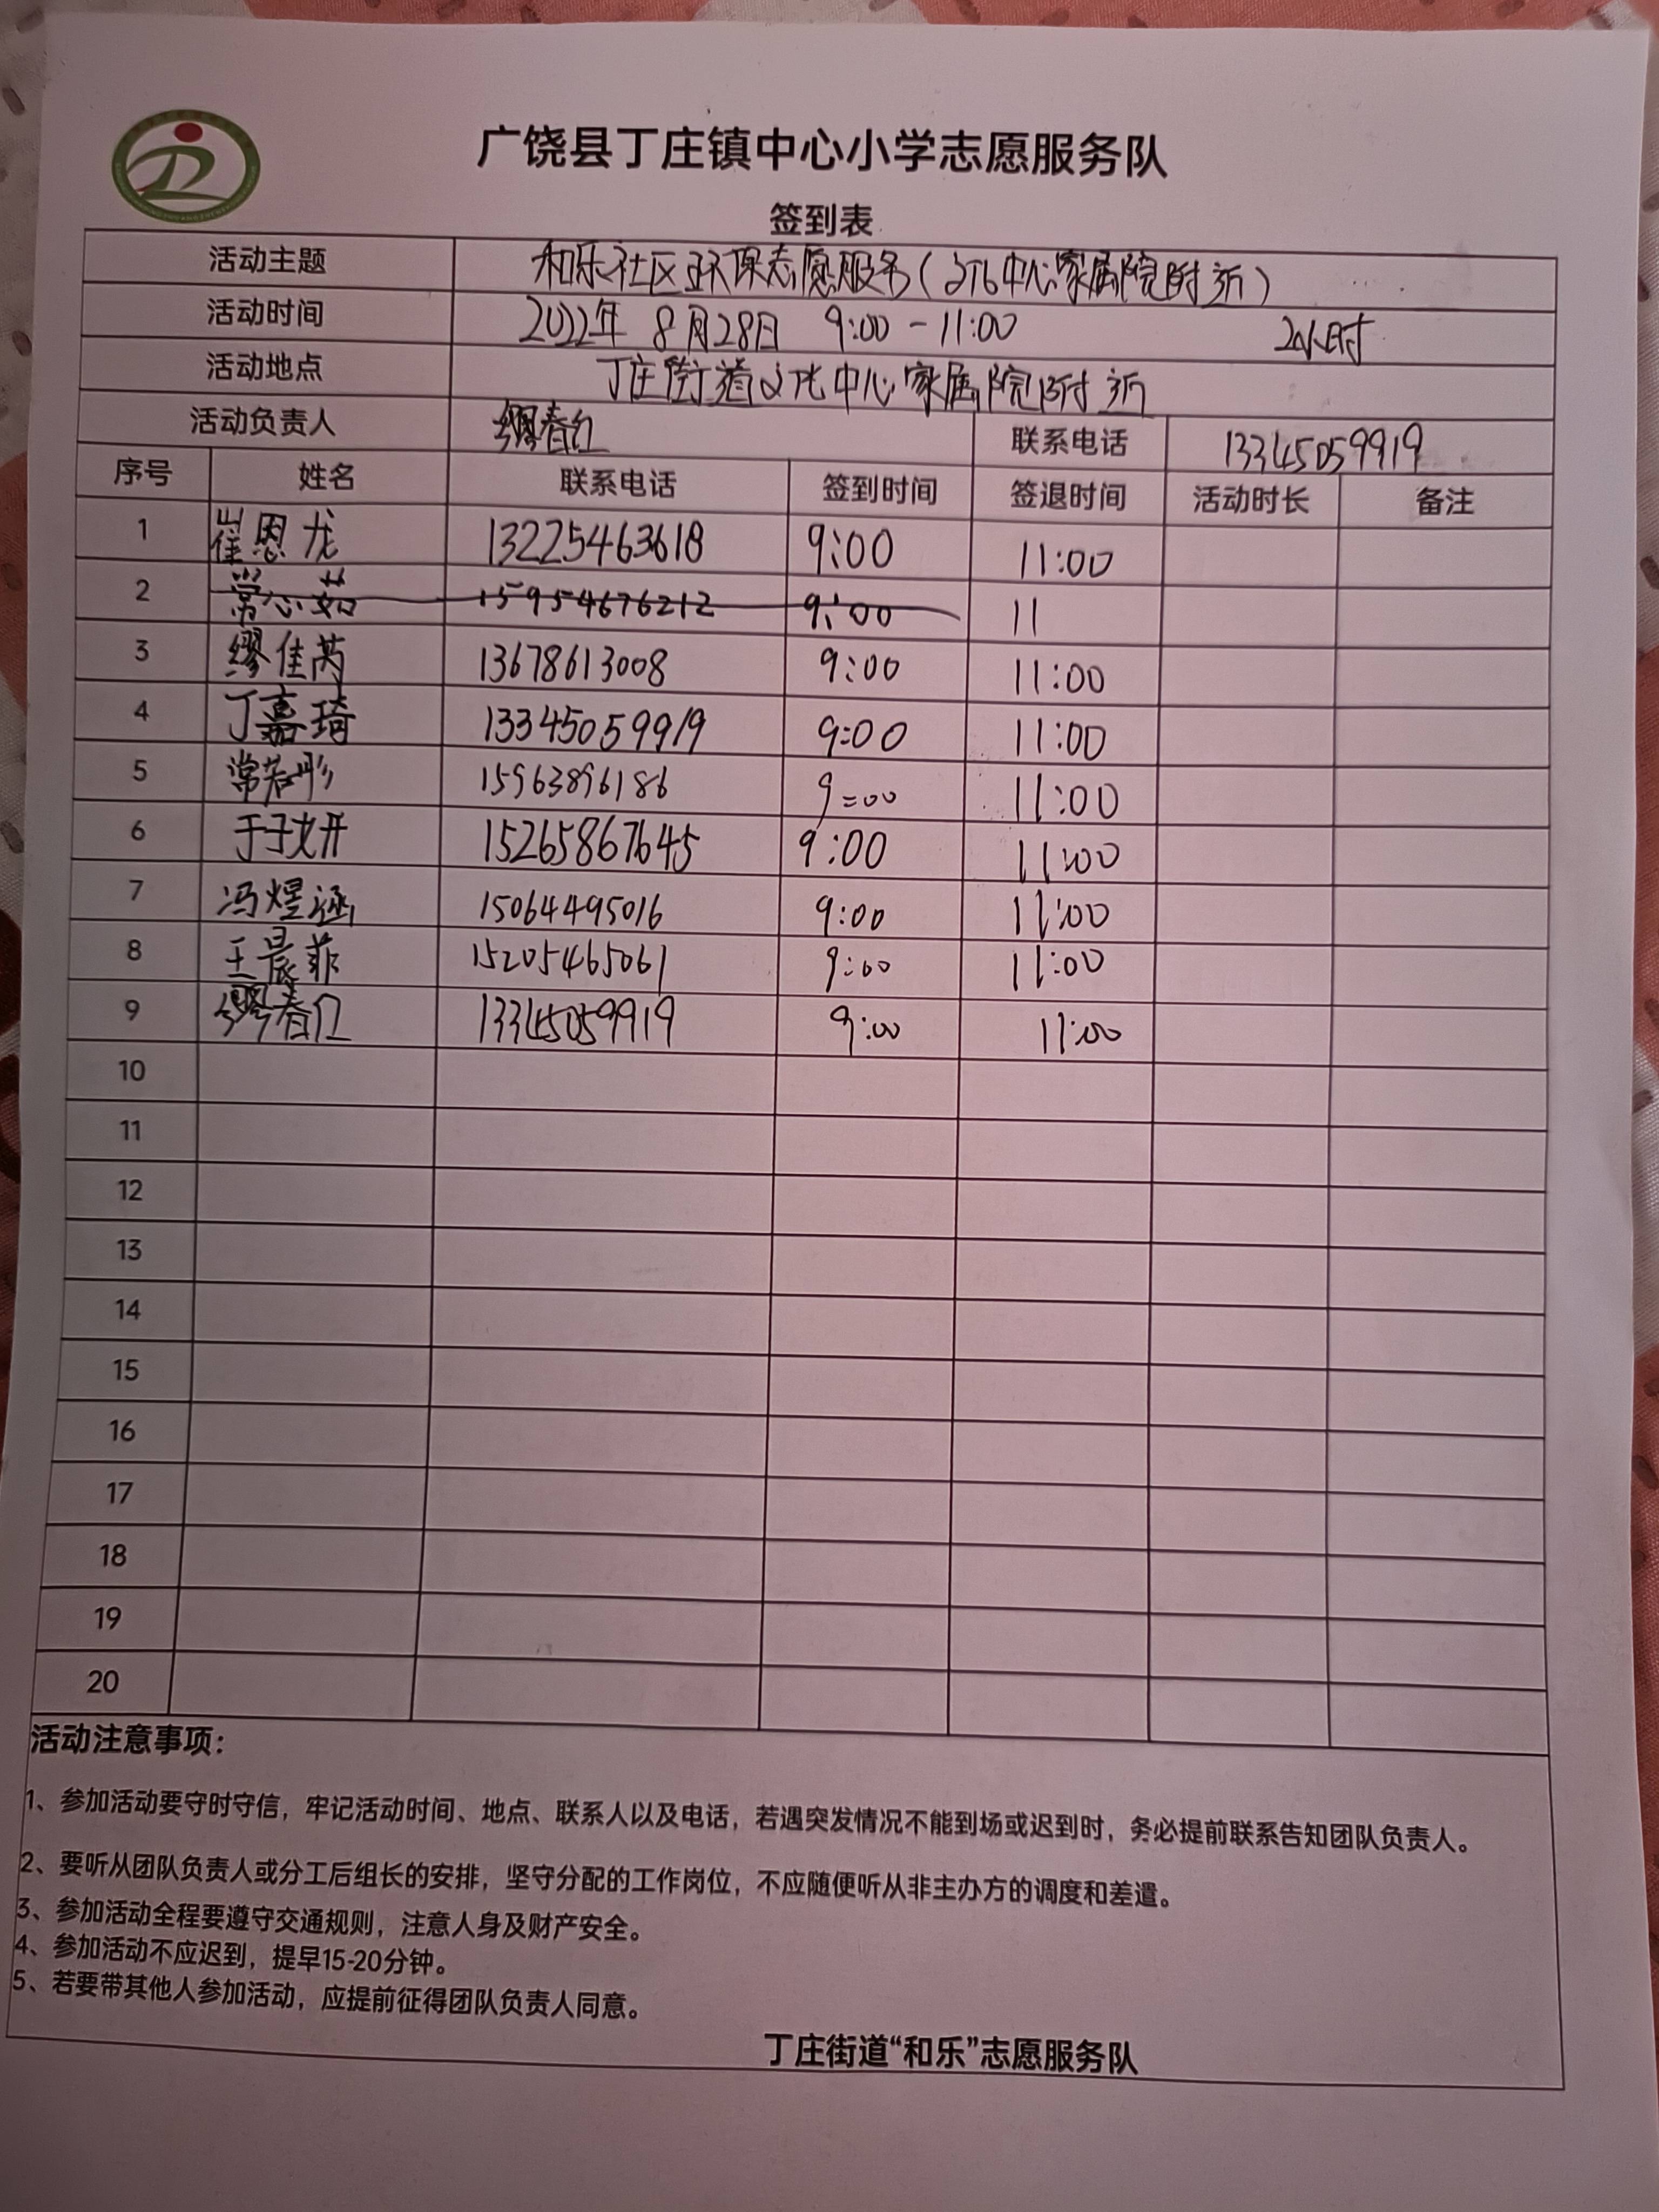 广饶县丁庄镇中心小学志愿服务队
签到表
活动主题 和乐社区环保志愿服务（文化中心家属院附近）
活动时间 2022年 8月28日 9:00-11:00 2小时
活动地点 丁庄街道文化中心家属院附近
活动负责人 缪春红 联系电话 13345059919
序号 姓名 联系电话 签到时间 签退时间 活动时长 备注
1 崔恩龙 13225463618 9:00 11:00
2 常心茹 15954676212 9:00 11
3 缪佳芮 13678613008 9:00 11:00
4 丁嘉琦 13345059919 9:00 11:00
5 常若彤 15963896186 9=00 11:00
6 于子妍 15265867645 9:00 11:00
7 冯煜涵 15064495016 9:00 11:00
8 王晨菲 15205465061 9:00 11:00
9 缪春红 13345059919 9:00 11:00
10
11
12
13
14
15
16
17
18
19
20
活动注意事项：
1、参加活动要守时守信，牢记活动时间、地点、联系人以及电话，若遇突发情况不能到场或迟到时，务必提前联系告知团队负责人。
2、要听从团队负责人或分工后组长的安排，坚守分配的工作岗位，不应随便听从非主办方的调度和差遣。
3、参加活动全程要遵守交通规则，注意人身及财产安全。
4、参加活动不应迟到，提早15-20分钟。
5、若要带其他人参加活动，应提前征得团队负责人同意。
丁庄街道“和乐”志愿服务队